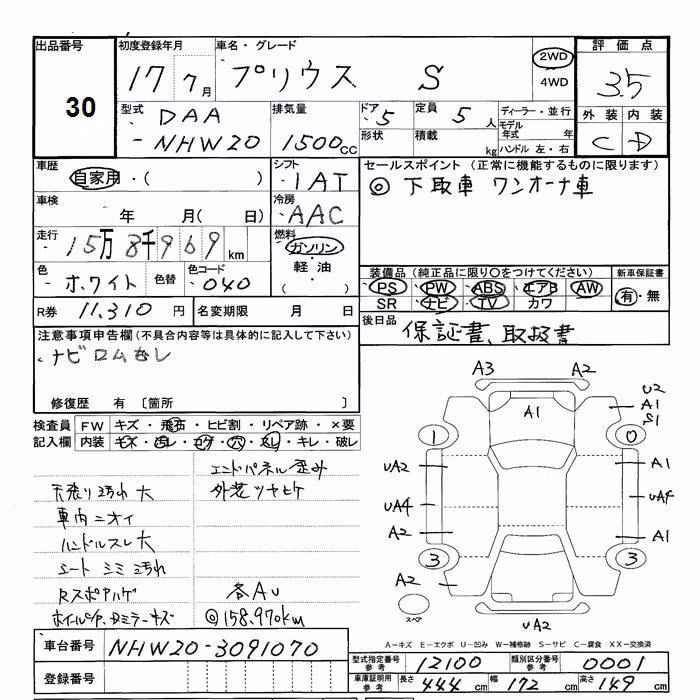 出品番号 初度登録年月 車名・グレード 評価点
30 17年 7月 プリウス S 2WD 4WD 3.5
外装 内装
C D
型式 DAA-NHW20 排気量 1500CC ドア 5 定員 5人 ディーラー・並行
形状 積載 kg モデル年式 年 ハンドル 左・右
車歴 自家用・( ) シフト IAT セールスポイント (正常に機能するものに限ります)
◎下取車 ワンオーナ車
車検 年 月(日) 冷房 AAC
走行 15万8千969km 燃料 ガソリン・軽油・( )
色 ホワイト 色替 色コード 040
装備品 (純正品に限り○をつけてください) 新車保証書
PS PW ABS エアB AW 有・無
SR ナビ TV カワ
R券 11,310円 名変期限 月 日 後日品 保証書、取扱書
注意事項申告欄 (不具合内容等は具体的に記入して下さい)
ナビロムなし
修復歴 有 〔箇所 〕
検査員記入欄 FW キズ・飛石・ヒビ割・リペア跡・×要
内装 キズ・汚レ・コゲ・穴・スレ・キレ・破レ
エンドパネル歪み
天張り汚れ大 外装ツヤヒケ
車内ニオイ
ハンドルスレ大
シート シミ 汚れ
Rスポアハゲ 各AU
ホイルキズ、Dミラーキズ ◎158,970km
A3 A2
U2
A1
S1
A1
1 0
UA2 A1
UA4 UA4
A2 A1
3 3
A2
スペア
UA2
A-キズ E-エクボ U-凹み W-補修跡 S-サビ C-腐食 XX-交換済
車台番号 NHW20-3091070
登録番号
型式指定番号 参考 12100 類別区分番号 参考 0001
車庫証明用 参考 長さ 444cm 幅 172cm 高さ 149cm